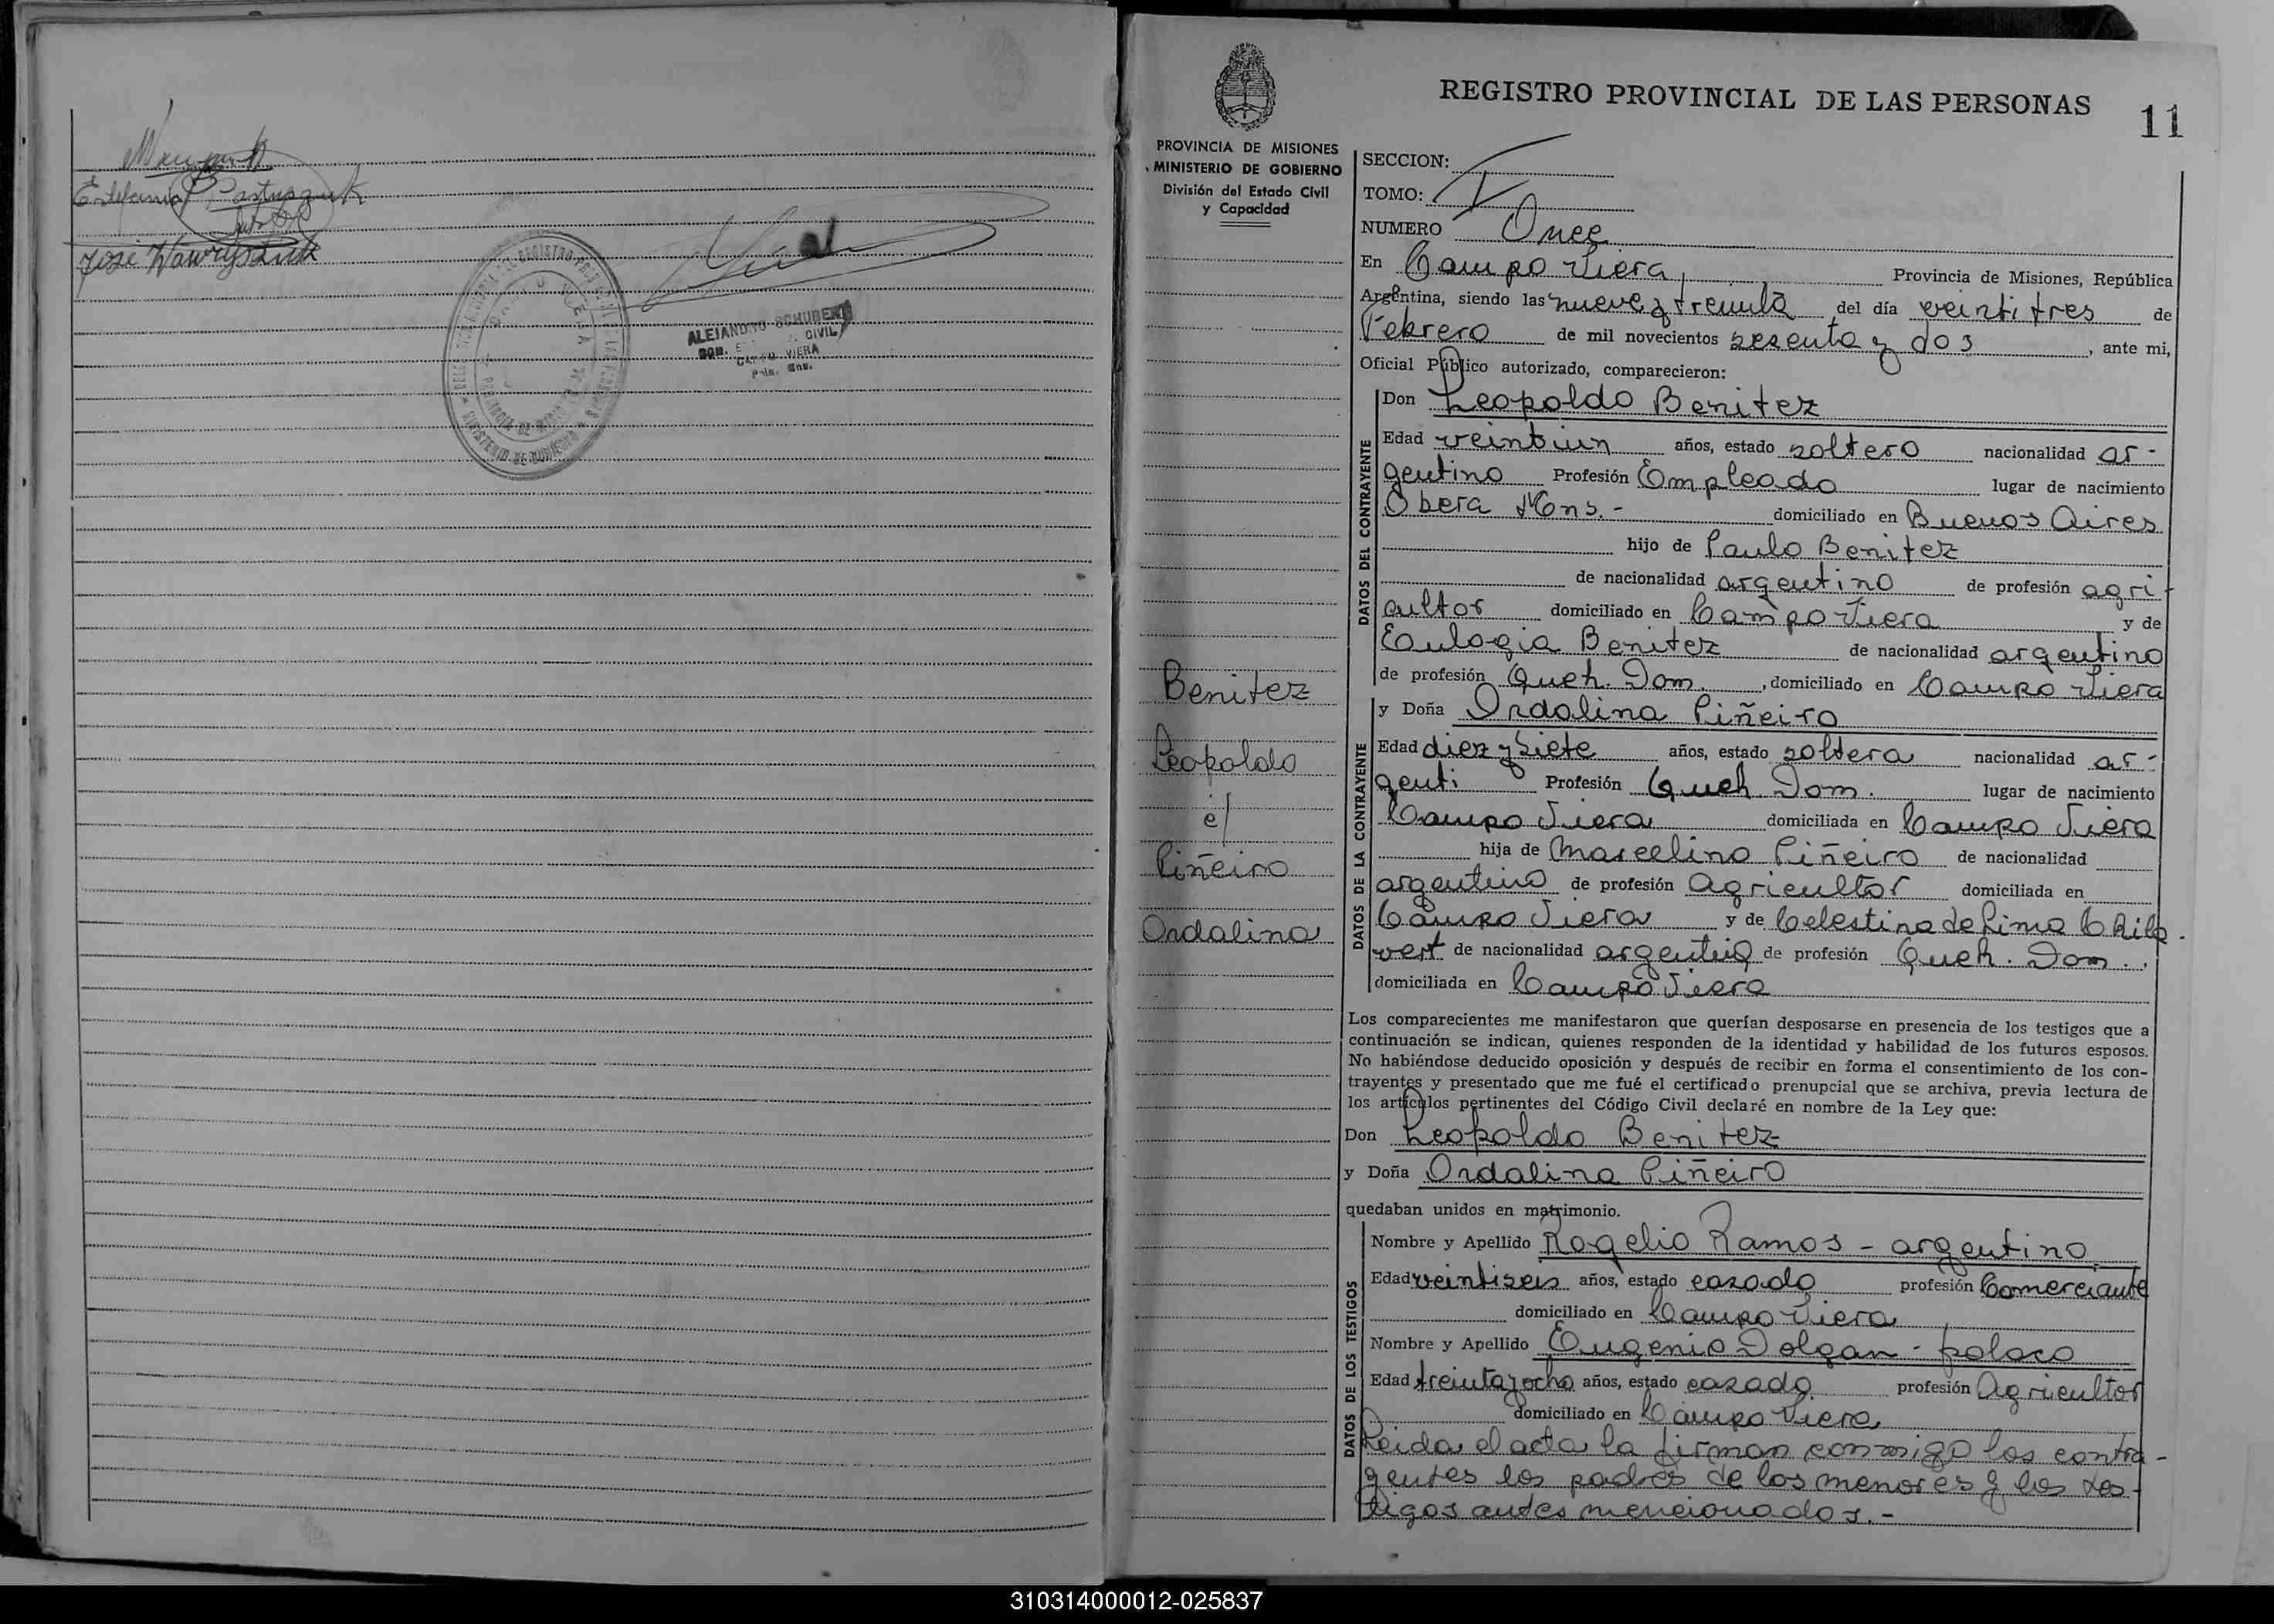 Estefania Pastuszuk
José Wawryszuk
ALEJANDRO SCHUBERT
CIVIL
CAMPO VIERA
REGISTRO PROVINCIAL DE LAS PERSONAS 11
PROVINCIA DE MISIONES
MINISTERIO DE GOBIERNO
División del Estado Civil
y Capacidad
SECCION:
TOMO: I
NUMERO Once
En Campo Viera, Provincia de Misiones, República
Argentina, siendo las nueve y treinta del día veintitres de
Febrero de mil novecientos sesenta y dos, ante mi,
Oficial Público autorizado, comparecieron:
DATOS DEL CONTRAYENTE
Don Leopoldo Benitez
Edad veintiun años, estado soltero nacionalidad ar-
gentino Profesión Empleado lugar de nacimiento
Obera Mns.- domiciliado en Buenos Aires
hijo de Paulo Benitez
de nacionalidad argentino de profesión agri-
cultor domiciliado en Campo Viera y de
Eulogia Benitez de nacionalidad argentino
de profesión Queh. Dom., domiciliado en Campo Viera
DATOS DE LA CONTRAYENTE
y Doña Ordalina Piñeiro
Edad diez y siete años, estado soltera nacionalidad ar-
genti Profesión Queh. Dom. lugar de nacimiento
Campo Viera domiciliada en Campo Viera
hija de Marcelino Piñeiro de nacionalidad
argentino de profesión Agricultor domiciliada en
Campo Viera y de Celestina de Lima Chila-
vert de nacionalidad argentina de profesión Queh. Dom.,
domiciliada en Campo Viera
Benitez
Leopoldo
é/
Piñeiro
Ordalina
Los comparecientes me manifestaron que querían desposarse en presencia de los testigos que a
continuación se indican, quienes responden de la identidad y habilidad de los futuros esposos.
No habiéndose deducido oposición y después de recibir en forma el consentimiento de los con-
trayentes y presentado que me fué el certificado prenupcial que se archiva, previa lectura de
los artículos pertinentes del Código Civil declaré en nombre de la Ley que:
Don Leopoldo Benitez
y Doña Ordalina Piñeiro
quedaban unidos en matrimonio.
DATOS DE LOS TESTIGOS
Nombre y Apellido Rogelio Ramos - argentino
Edad veintiseis años, estado casado profesión Comerciante
domiciliado en Campo Viera
Nombre y Apellido Eugenio Dolgan - polaco
Edad treinta y ocho años, estado casado profesión Agricultor
domiciliado en Campo Viera
Leida el acta la firman conmigo los contra-
yentes los padres de los menores y los tes-
tigos antes mencionados.-
310314000012-025837